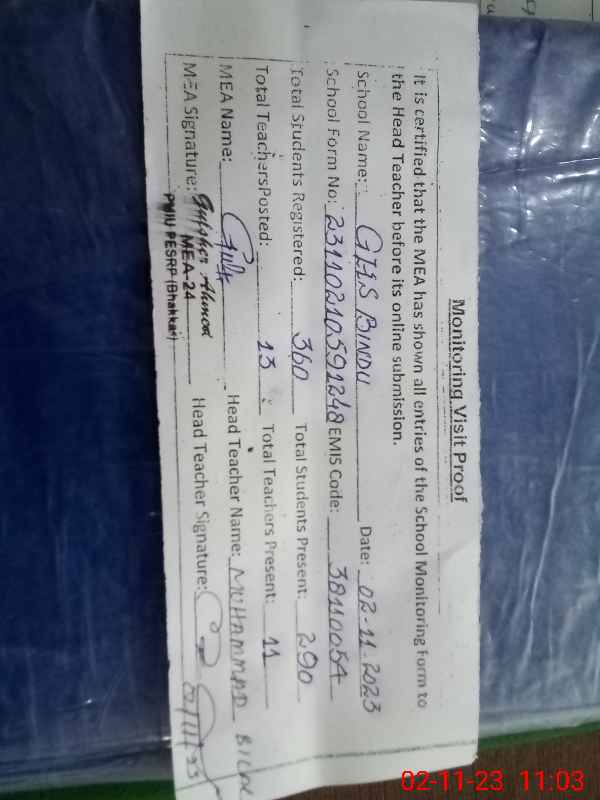 Monitoring Visit Proof
It is certified that the MEA has shown all entries of the School Monitoring Form to
the Head Teacher before its online submission.
School Name: GHS BINDU Date: 02-11-2023
School Form No: 23110210591248 EMIS Code: 38110054
Total Students Registered: 360 Total Students Present: 290
Total Teachers Posted: 13 Total Teachers Present: 11
MEA Name: Head Teacher Name: MUHAMMAD BILAL
MEA Signature: Gulsher Ahmad Head Teacher Signature:
MEA-24
PMIU PESRP (Bhakkar)
02-11-23 11:03